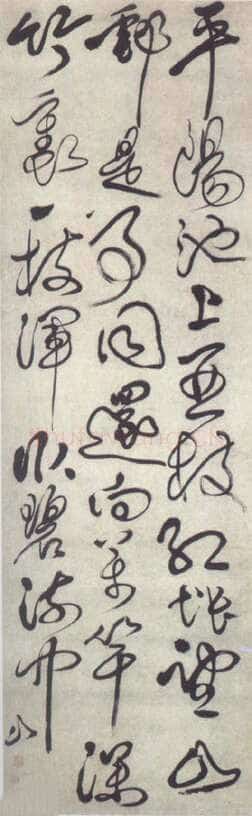 平陽池上亞枝紅悵望山
郵是事同還向萬竿深
竹裏一枝渾臥碧流中 山